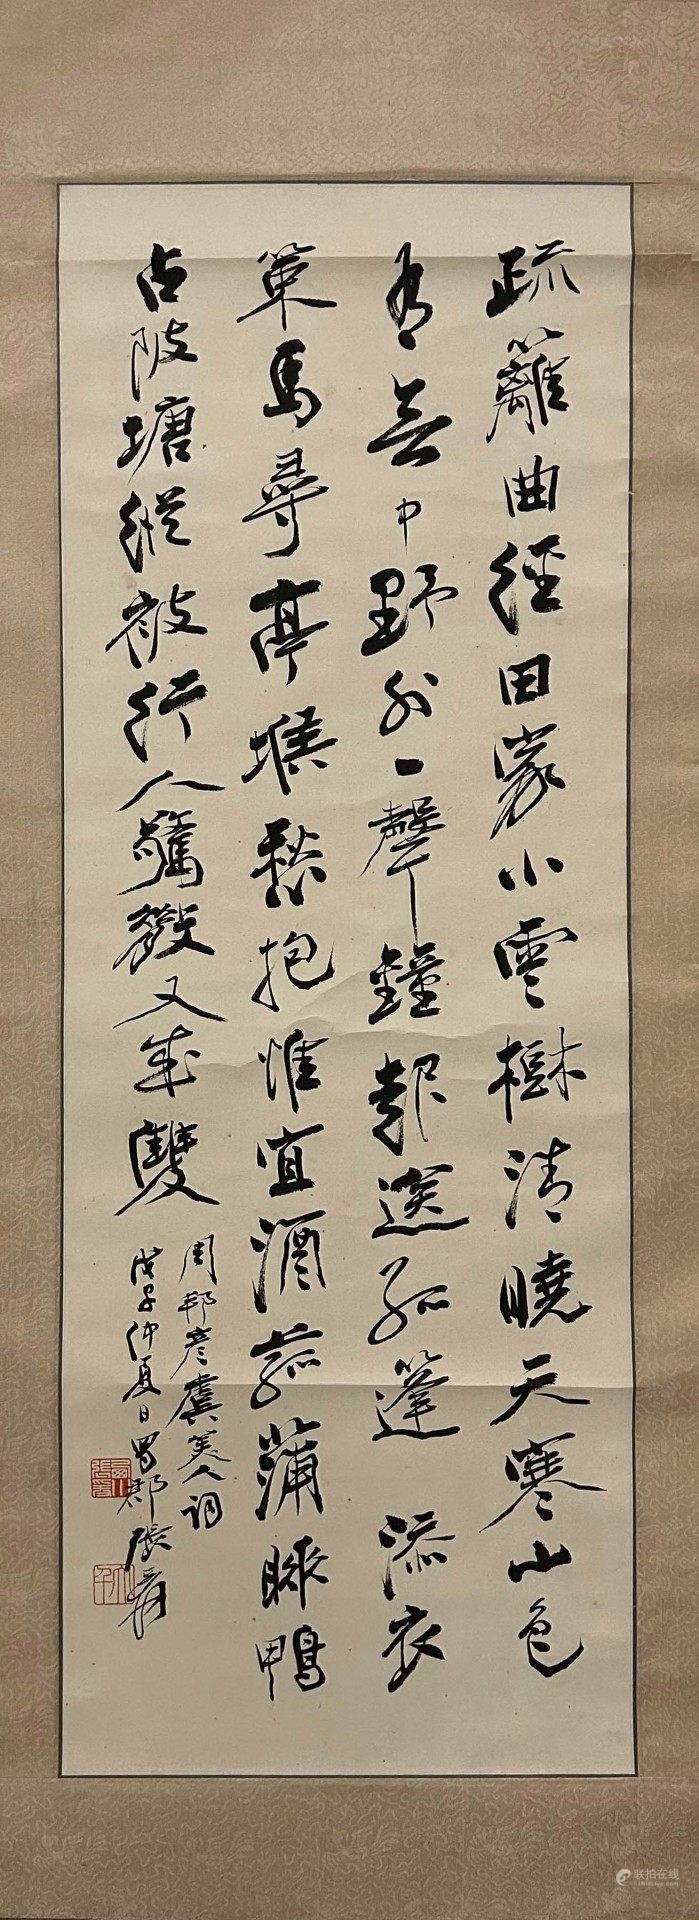 疏籬曲徑田家小雲樹清曉天寒山色
有無中野外一聲鐘起送孤篷 添衣
策馬尋亭堠愁抱惟宜酒菰蒲睡鴨
占陂塘縱被行人驚散又成雙
周邦彥虞美人詞
戊子仲夏日蜀郡張爰
張爰
大千
联拍在线